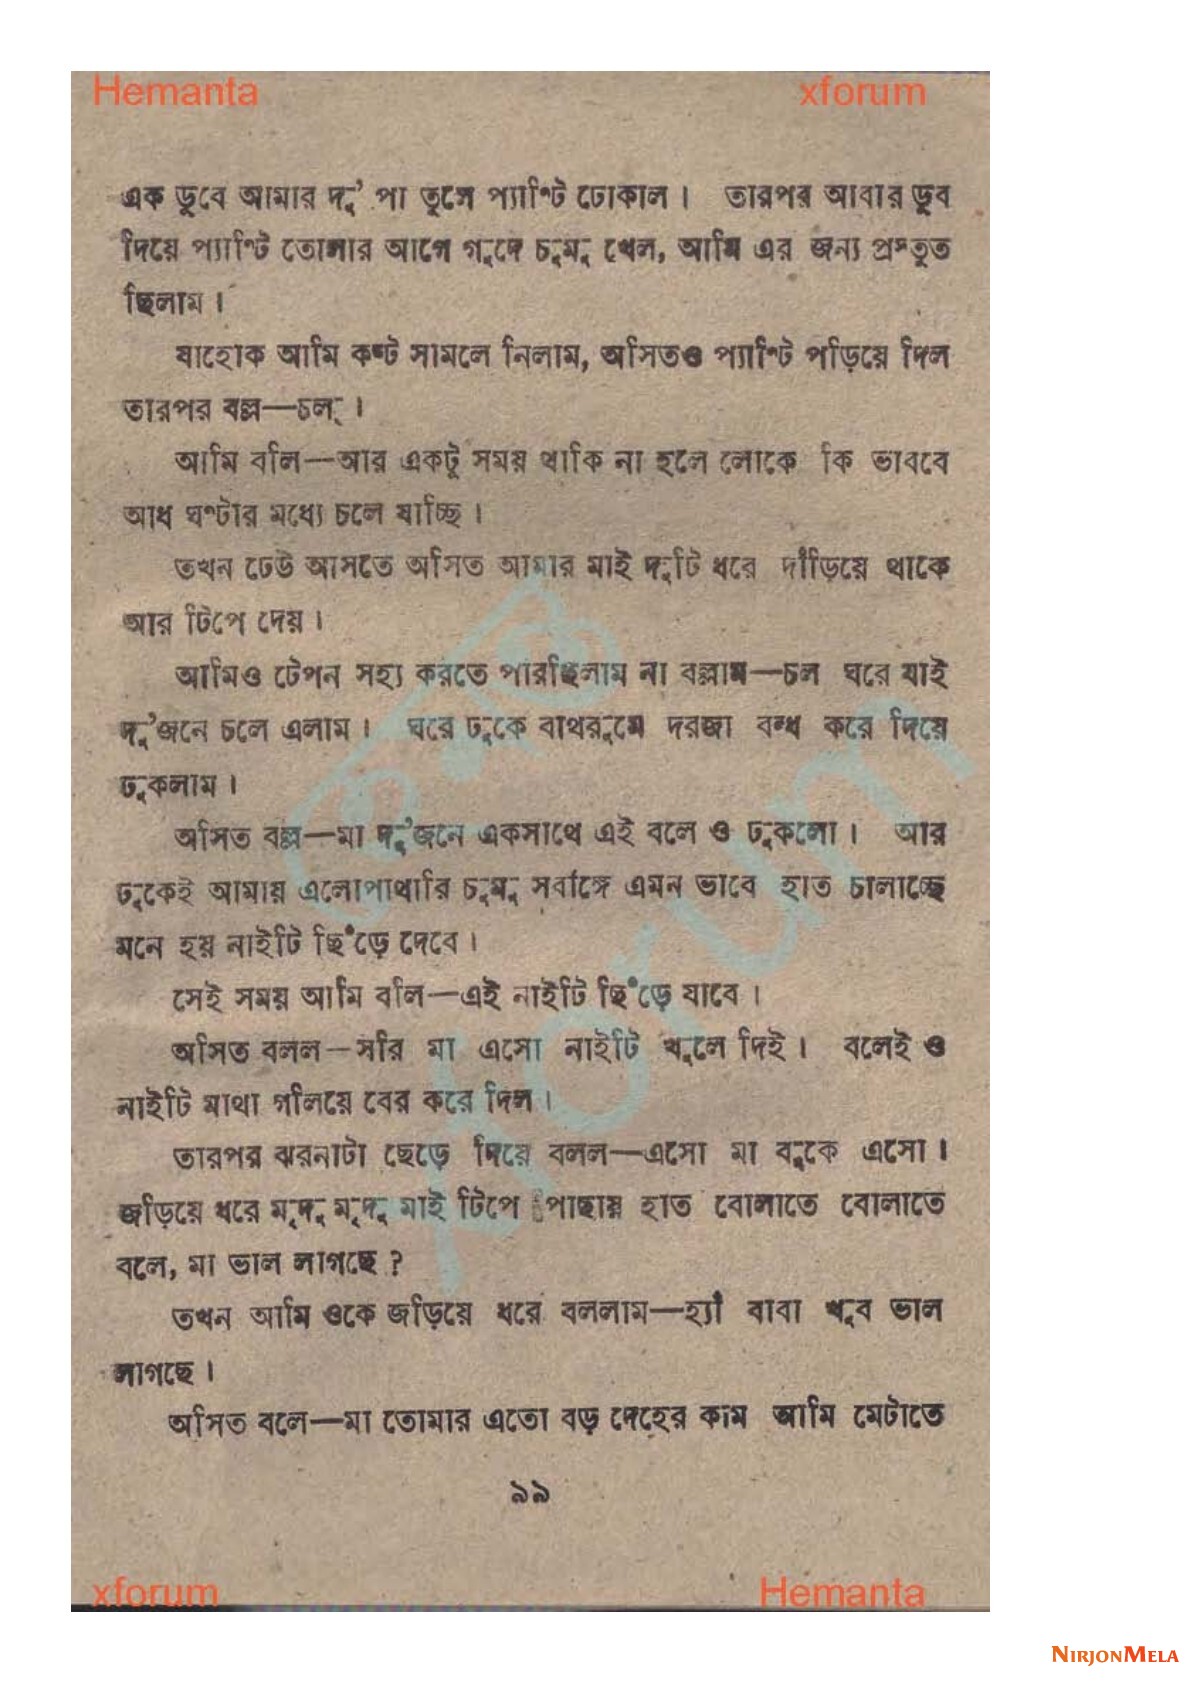 Hemanta xforum
এক ডুবে আমার দু' পা তুলে প্যাণ্টি ঢোকাল। তারপর আবার ডুব
দিয়ে প্যাণ্টি তোলার আগে গুদে চুমু খেল, আমি এর জন্য প্রস্তুত
ছিলাম।
যাহোক আমি কষ্ট সামলে নিলাম, অসিতও প্যাণ্টি পড়িয়ে দিল
তারপর বল্ল—চল্‌।
আমি বলি—আর একটু সময় থাকি না হলে লোকে কি ভাববে
আধ ঘণ্টার মধ্যে চলে যাচ্ছি।
তখন ঢেউ আসতে অসিত আমার মাই দুটি ধরে দাঁড়িয়ে থাকে
আর টিপে দেয়।
আমিও টেপন সহ্য করতে পারছিলাম না বল্লাম—চল ঘরে যাই
দু'জনে চলে এলাম। ঘরে ঢুকে বাথরুমে দরজা বন্ধ করে দিয়ে
ঢুকলাম।
অসিত বল্ল—মা দু'জনে একসাথে এই বলে ও ঢুকলো। আর
ঢুকেই আমায় এলোপাথারি চুমু সর্বাঙ্গে এমন ভাবে হাত চালাচ্ছে
মনে হয় নাইটি ছিঁড়ে দেবে।
সেই সময় আমি বলি—এই নাইটি ছিঁড়ে যাবে।
অসিত বলল—সরি মা এসো নাইটি খুলে দিই। বলেই ও
নাইটি মাথা গলিয়ে বের করে দিল।
তারপর ঝরনাটা ছেড়ে দিয়ে বলল—এসো মা বুকে এসো।
জড়িয়ে ধরে মৃদু মৃদু মাই টিপে পাছায় হাত বোলাতে বোলাতে
বলে, মা ভাল লাগছে?
তখন আমি ওকে জড়িয়ে ধরে বললাম—হ্যাঁ বাবা খুব ভাল
লাগছে।
অসিত বলে—মা তোমার এতো বড় দেহের কাম আমি মেটাতে
৯৯
xforum Hemanta
NIRJONMELA